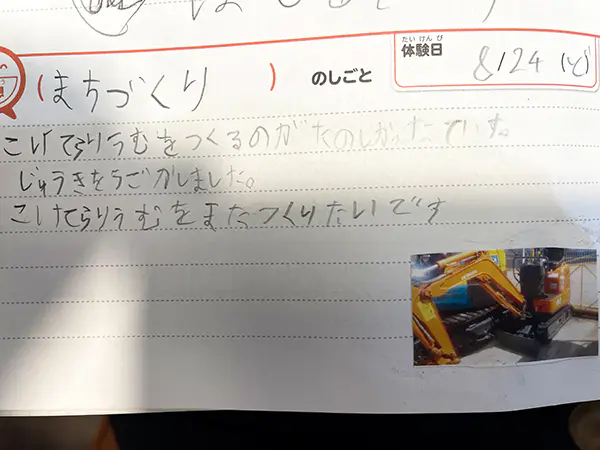 (まちづくり)のしごと
たいけんび
体験日 8/24(ど)
こけてらりうむをつくるのがたのしかったでいす。
じゅうきをうごかしました。
こけてらりうむをまたつくりたいです